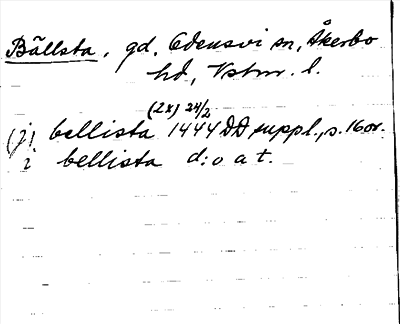 Bällsta, gd, Odensvi sn, Åkerbo
hd, Vstm. l.
(2x) 24/2
(j) bellista 1444 DD suppl., s. 16 or.
i bellista d:o a t.